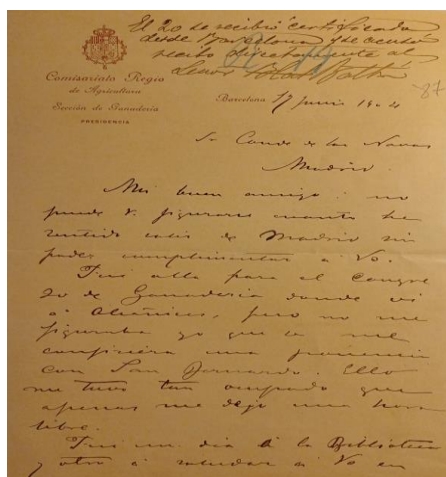 El 20 se recibió certificado
desde Barcelona y se acusó
recibo directamente al
Señor
87
Comisaría Regia
de Agricultura
Sección de Ganadería
PRESIDENCIA
Barcelona 17 junio 1904
Sr Conde de las Navas
Madrid.
Mi buen amigo: no
puede V. figurarse cuanto he
sentido salir de Madrid sin
poder cumplimentar a Vd.
Fui allá para el Congre
so de Ganadería donde vi
a pero no me
figuraba yo que se me
confiriera una ponencia
con San Bernardo. Ello
me tuvo tan ocupado que
apenas me dejó una hora
libre.
Fui un día á la Biblioteca
y otro á saludar a Vd en